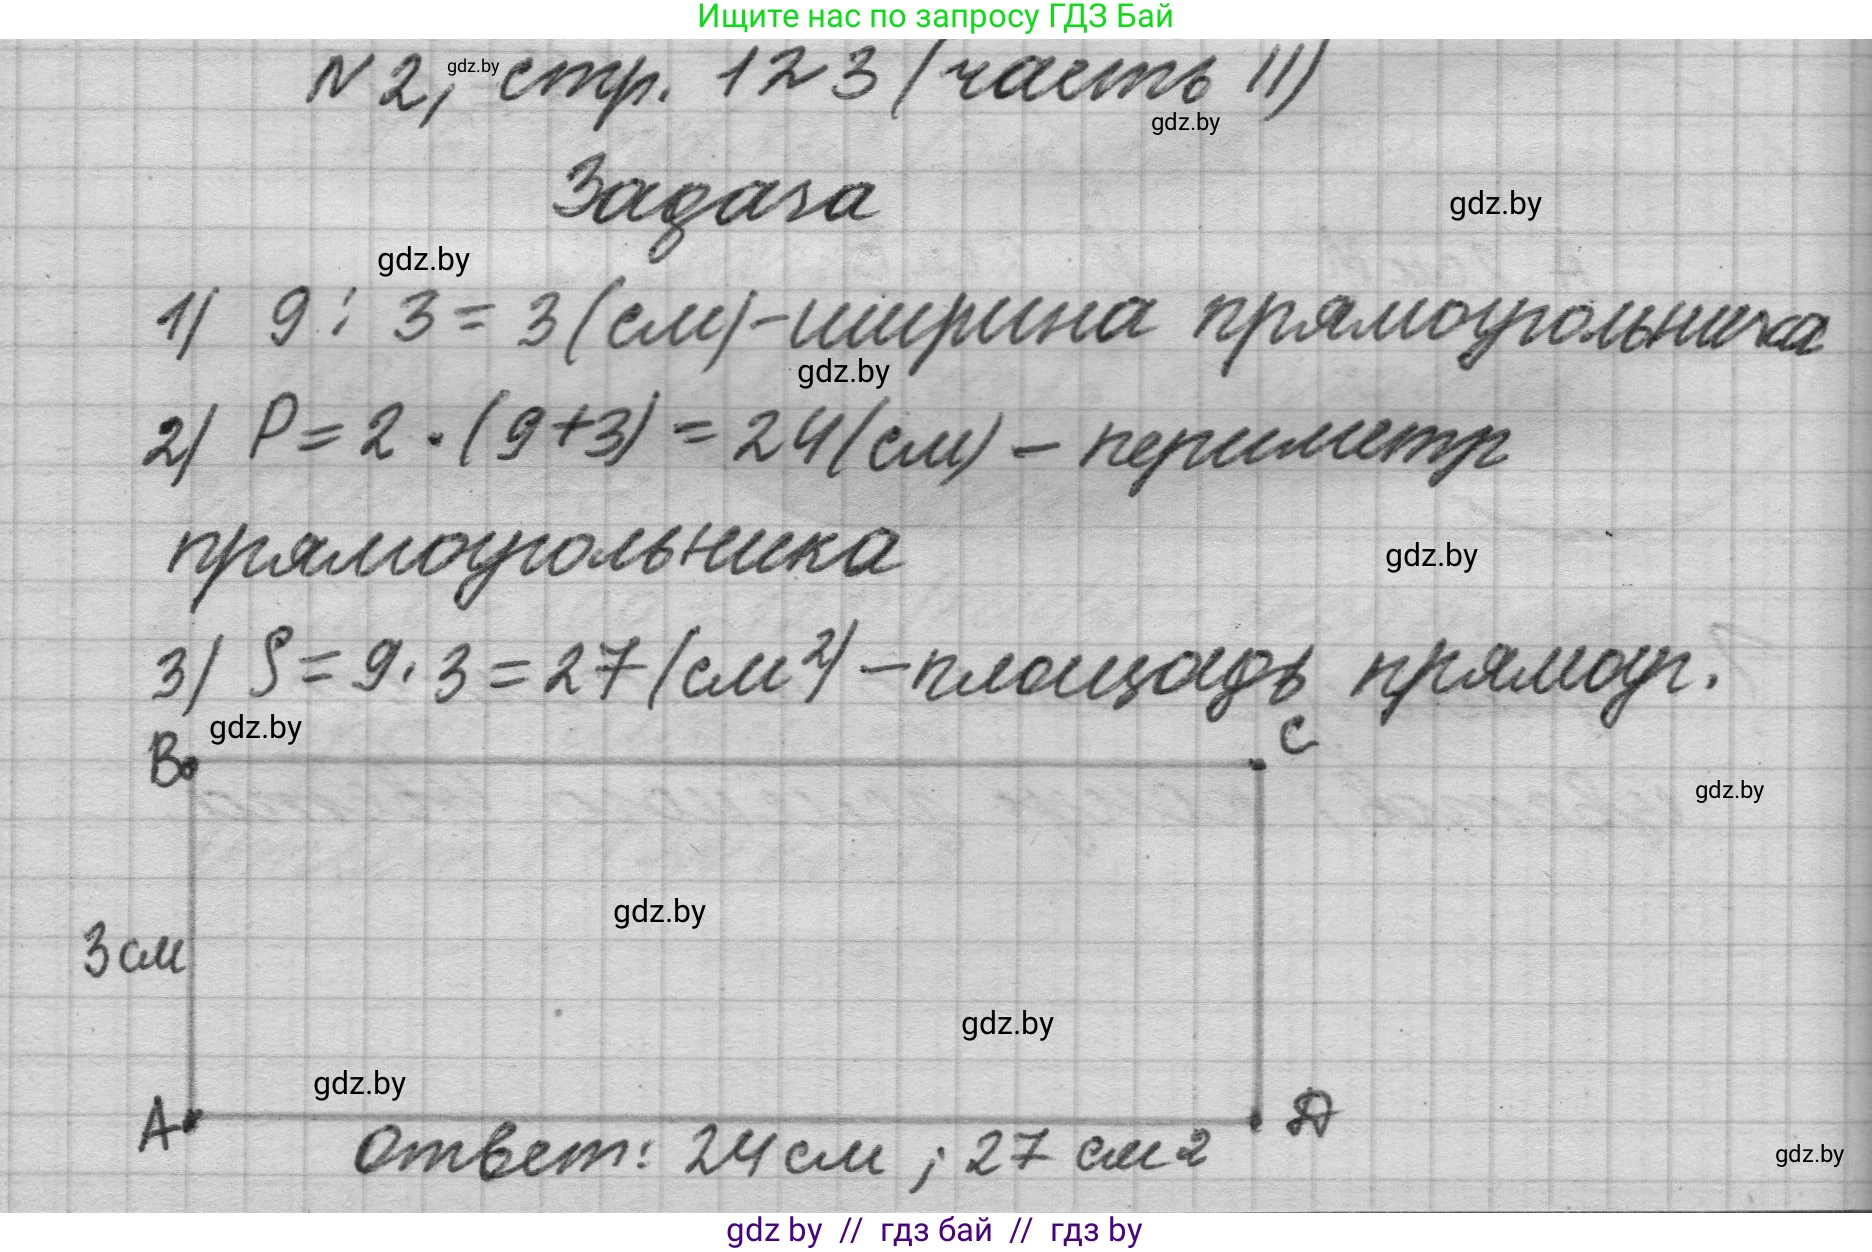 Ищите нас по запросу ГДЗ Бай
N 2, стр. 123 (часть II)
gdz.by
gdz.by
Задача
gdz.by
gdz.by
1) 9 : 3 = 3 (см) - ширина прямоугольника
gdz.by
2) P = 2 · (9+3) = 24 (см) - периметр
прямоугольника
gdz.by
3) S = 9 · 3 = 27 (см²) - площадь прямоуг.
gdz.by
B
C
gdz.by
gdz.by
3 см
gdz.by
gdz.by
A
D
Ответ: 24 см ; 27 см²
gdz.by
gdz by // гдз бай // гдз by